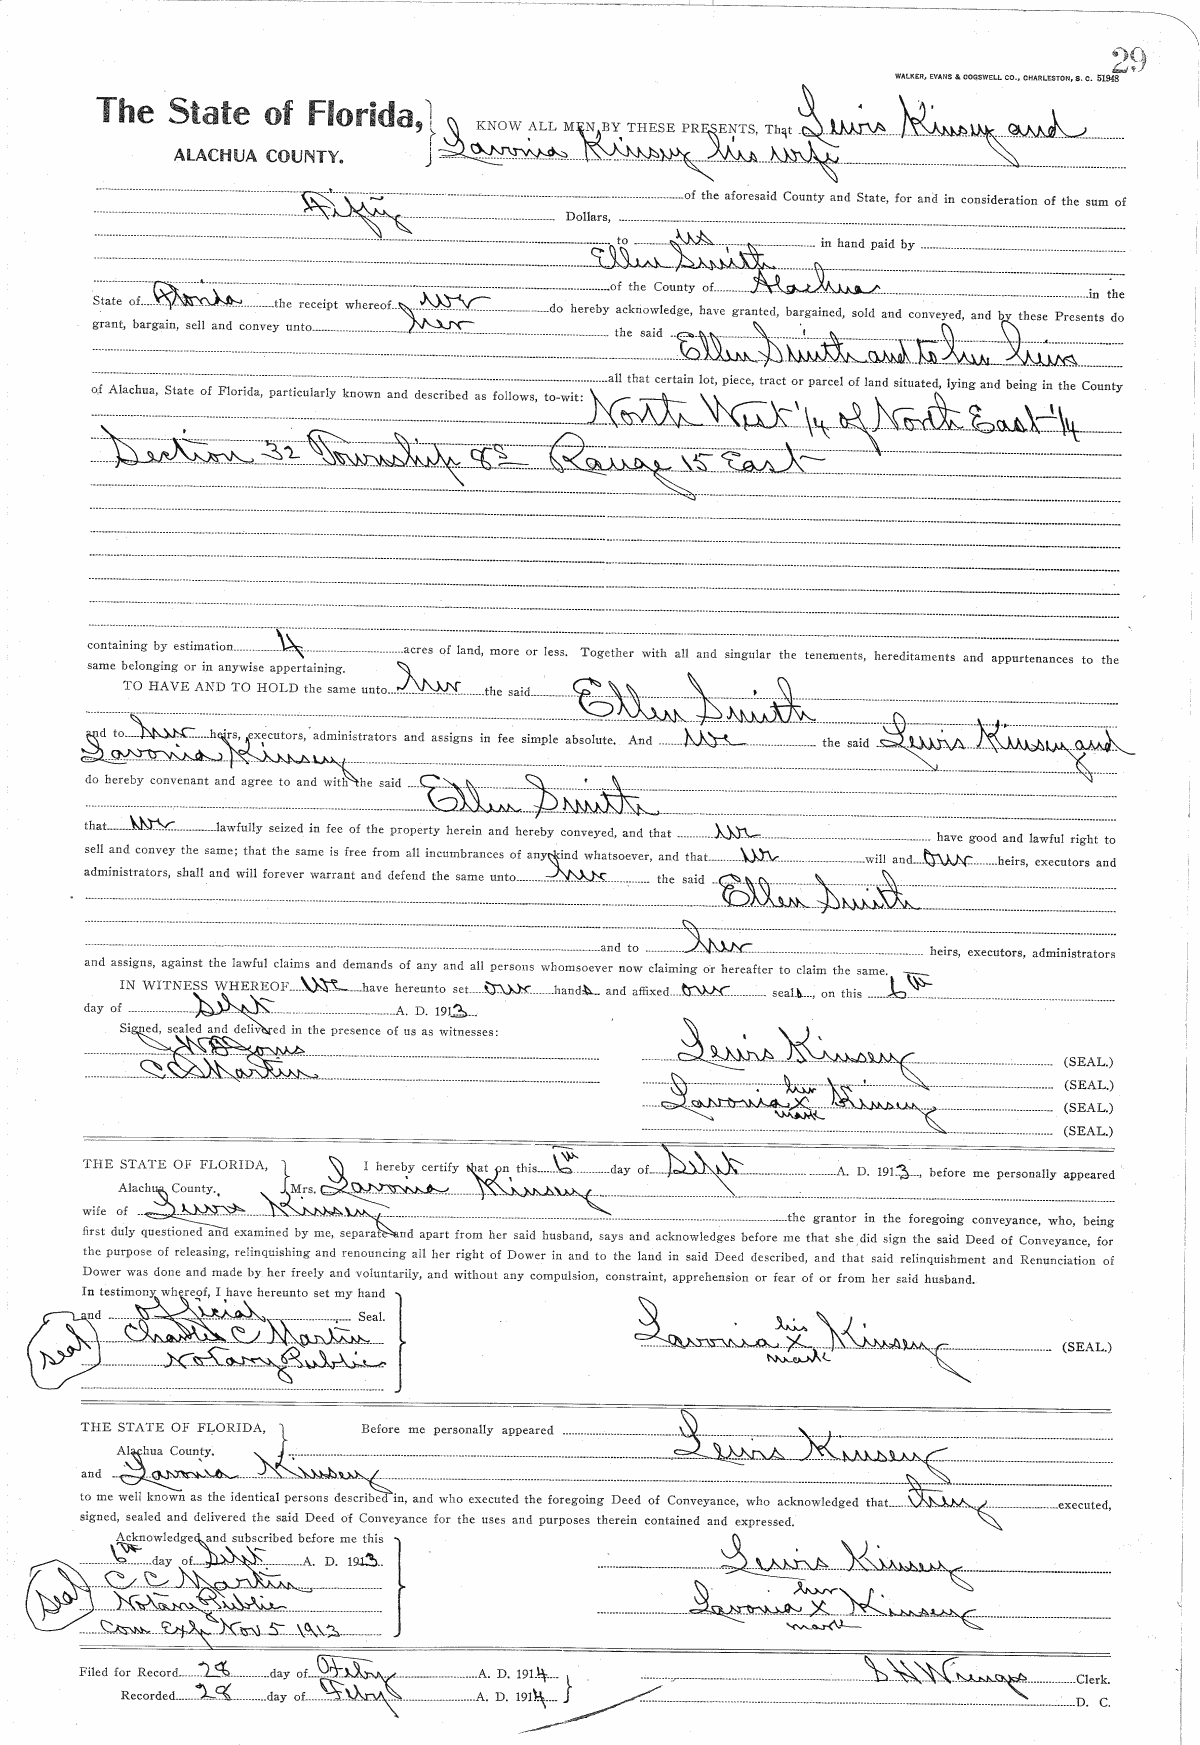 29
WALKER, EVANS & COGSWELL CO., CHARLESTON, S. C. 51948
The State of Florida,
ALACHUA COUNTY.
KNOW ALL MEN BY THESE PRESENTS, That Lewis Kinsey and
Lavonia Kinsey his wife
of the aforesaid County and State, for and in consideration of the sum of
Fifty Dollars,
to us in hand paid by
Ellen Smith
of the County of Alachua in the
State of Florida the receipt whereof we do hereby acknowledge, have granted, bargained, sold and conveyed, and by these Presents do
grant, bargain, sell and convey unto her the said Ellen Smith and to her heirs
all that certain lot, piece, tract or parcel of land situated, lying and being in the County
of Alachua, State of Florida, particularly known and described as follows, to-wit: North West 1/4 of North East 1/4
Section 32 Township 8S Range 15 East
containing by estimation 4 acres of land, more or less. Together with all and singular the tenements, hereditaments and appurtenances to the
same belonging or in anywise appertaining.
TO HAVE AND TO HOLD the same unto her the said Ellen Smith
and to her heirs, executors, administrators and assigns in fee simple absolute. And we the said Lewis Kinsey and
Lavonia Kinsey
do hereby convenant and agree to and with the said Ellen Smith
that we lawfully seized in fee of the property herein and hereby conveyed, and that we have good and lawful right to
sell and convey the same; that the same is free from all incumbrances of any kind whatsoever, and that we will and our heirs, executors and
administrators, shall and will forever warrant and defend the same unto her the said Ellen Smith
and to her heirs, executors, administrators
and assigns, against the lawful claims and demands of any and all persons whomsoever now claiming or hereafter to claim the same.
IN WITNESS WHEREOF We have hereunto set our hands and affixed our seals, on this 6th
day of Sept A. D. 1913
Signed, sealed and delivered in the presence of us as witnesses:
C C Martin
Lewis Kinsey (SEAL.)
(SEAL.)
Lavonia her x mark Kinsey (SEAL.)
(SEAL.)
THE STATE OF FLORIDA,
Alachua County.
I hereby certify that on this 6th day of Sept A. D. 1913, before me personally appeared
Mrs. Lavonia Kinsey
wife of Lewis Kinsey the grantor in the foregoing conveyance, who, being
first duly questioned and examined by me, separate and apart from her said husband, says and acknowledges before me that she did sign the said Deed of Conveyance, for
the purpose of releasing, relinquishing and renouncing all her right of Dower in and to the land in said Deed described, and that said relinquishment and Renunciation of
Dower was done and made by her freely and voluntarily, and without any compulsion, constraint, apprehension or fear of or from her said husband.
In testimony whereof, I have hereunto set my hand
and official Seal.
Seal
Charles C Martin
Notary Public
Lavonia his x mark Kinsey (SEAL.)
THE STATE OF FLORIDA,
Alachua County.
Before me personally appeared Lewis Kinsey
and Lavonia Kinsey
to me well known as the identical persons described in, and who executed the foregoing Deed of Conveyance, who acknowledged that they executed,
signed, sealed and delivered the said Deed of Conveyance for the uses and purposes therein contained and expressed.
Acknowledged and subscribed before me this
6th day of Sept A. D. 1913
Seal
C C Martin
Notary Public
Com Exp Nov 5 1913
Lewis Kinsey
Lavonia her x mark Kinsey
Filed for Record 28 day of Feby A. D. 1914
Recorded 28 day of Feby A. D. 1914
S H Wienges Clerk.
D. C.